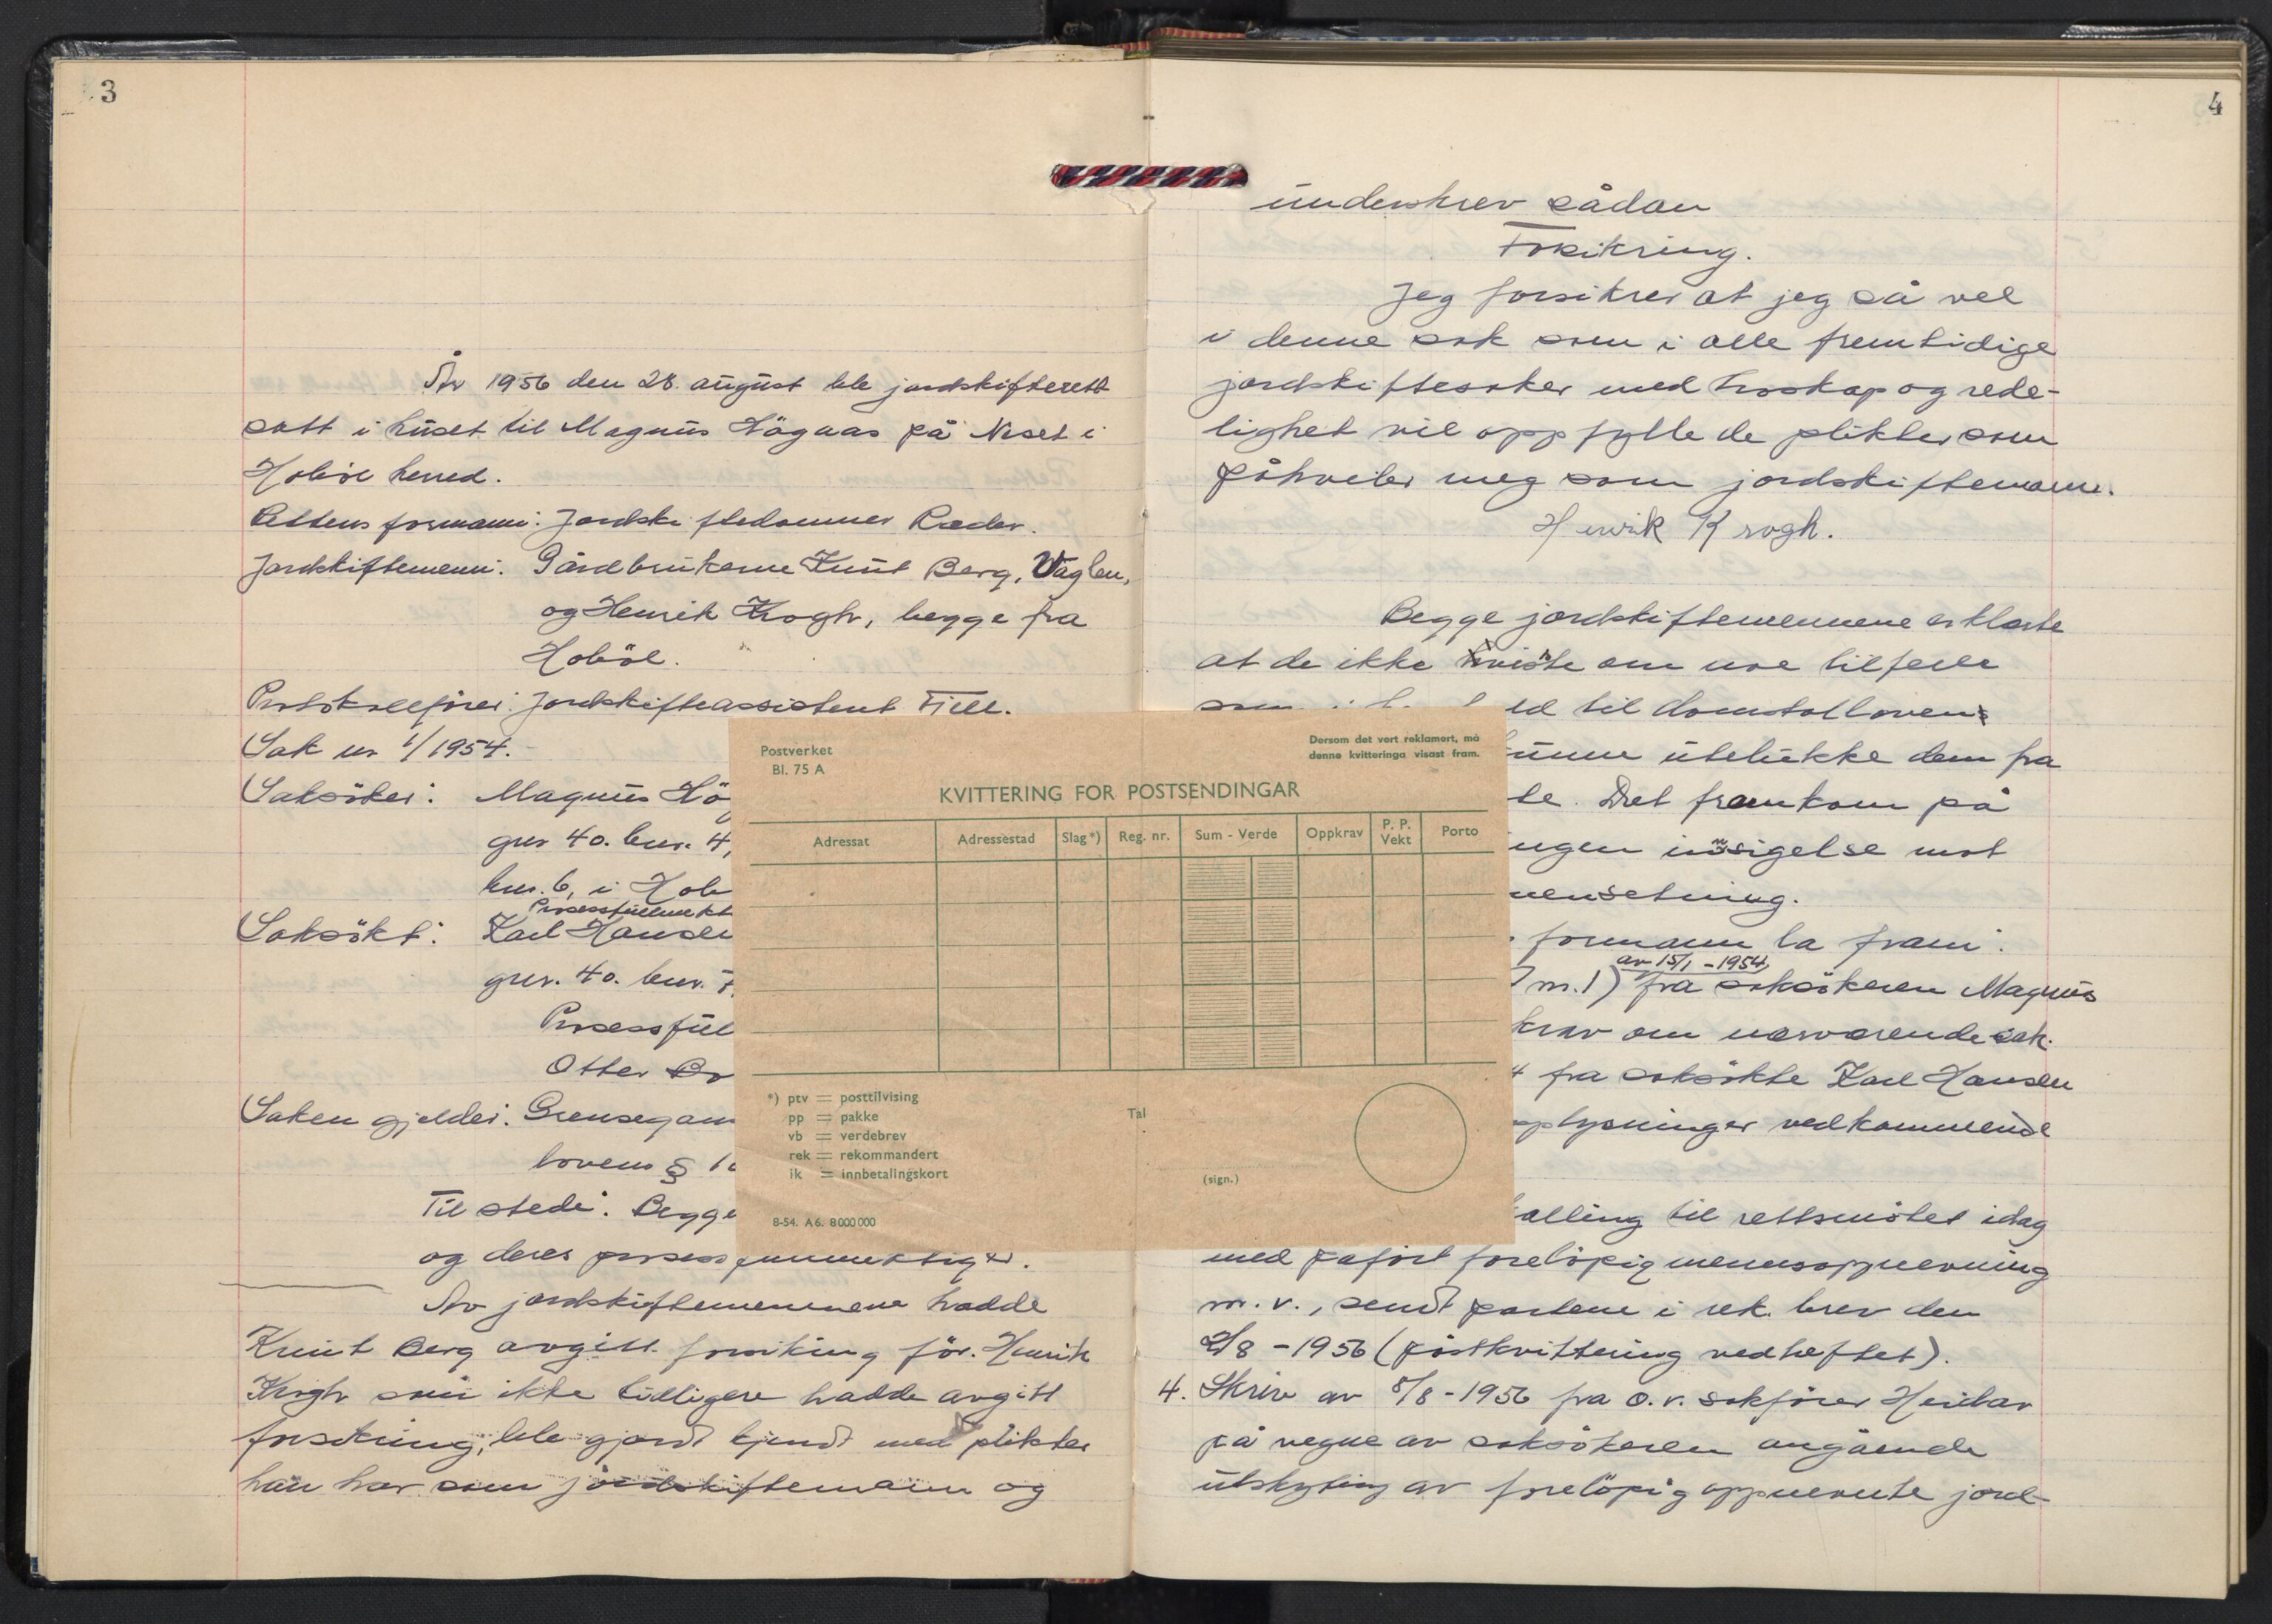 3
År 1956 den 28. august ble jordskifterett
satt i huset til Magnus Högaas på Neset i
Hobøl herred.
Rettens formann: Jordskiftedommer Ræder.
Jordskiftemenn: Gårdbrukerne Knut Berg, Vaglen,
og Henrik Krogh, begge fra
Hobøl.
Protokollfører: Jordskifteassistent Fjell.
Sak nr 1/1954.
Saksöker: Magnus Hög
gnr 40. bnr. 4,
bnr. 6, i Hob
Prosessfullmekt
Saksökt: Karl Hansen
gnr. 40. bnr. 7.
Prosessful
Otter
Saken gjelder: Grensegan
lovens §
Til stede: Begge
og deres prosessfullmektiger.
Av jordskiftemennene hadde
Knut Berg avgitt forsikring för. Henrik
Krogh som ikke tidligere hadde avgitt
forsikring, ble gjordt kjendt med plikter
han har som jordskiftemann og
Postverket
Bl. 75 A
Dersom det vert reklamert, må
denne kvitteringa visast fram.
KVITTERING FOR POSTSENDINGAR
Adressat Adressestad Slag*) Reg. nr. Sum - Verde Oppkrav P. P. Vekt Porto
*) ptv = posttilvising
pp = pakke
vb = verdebrev
rek = rekommandert
ik = innbetalingskort
Tal
(sign.)
8-54. A6. 8000000
4
underskrev sådan
Forsikring.
Jeg forsikrer at jeg så vel
i denne sak som i alle fremtidige
jordskiftesaker med troskap og rede-
lighet vil oppfylle de plikter som
påhviler meg som jordskiftemann.
Henrik Krogh.
Begge jordskiftemennene erklærte
at de ikke visste om noe tilfelle
som i ld til domstolloven
unne utelukke dem fra
te. Det framkom på
ngen innsigelse mot
mensetning.
formann la fram:
av 15/1 - 1954,
m.1) fra saksökeren Magnus
krav om nærværende sak.
4 fra saksökte Karl Hansen
pplysninger vedkommende
alling til rettsmötet idag
med påfört foreløpig mennsoppnevning
m. v., sendt partene i rek. brev den
2/8 - 1956 (postkvittering vedheftet).
4. Skriv av 8/8 - 1956 fra o.r. sakfører Heidar
på vegne av saksökeren angående
utskyting av forelöpig oppnevnte jord-